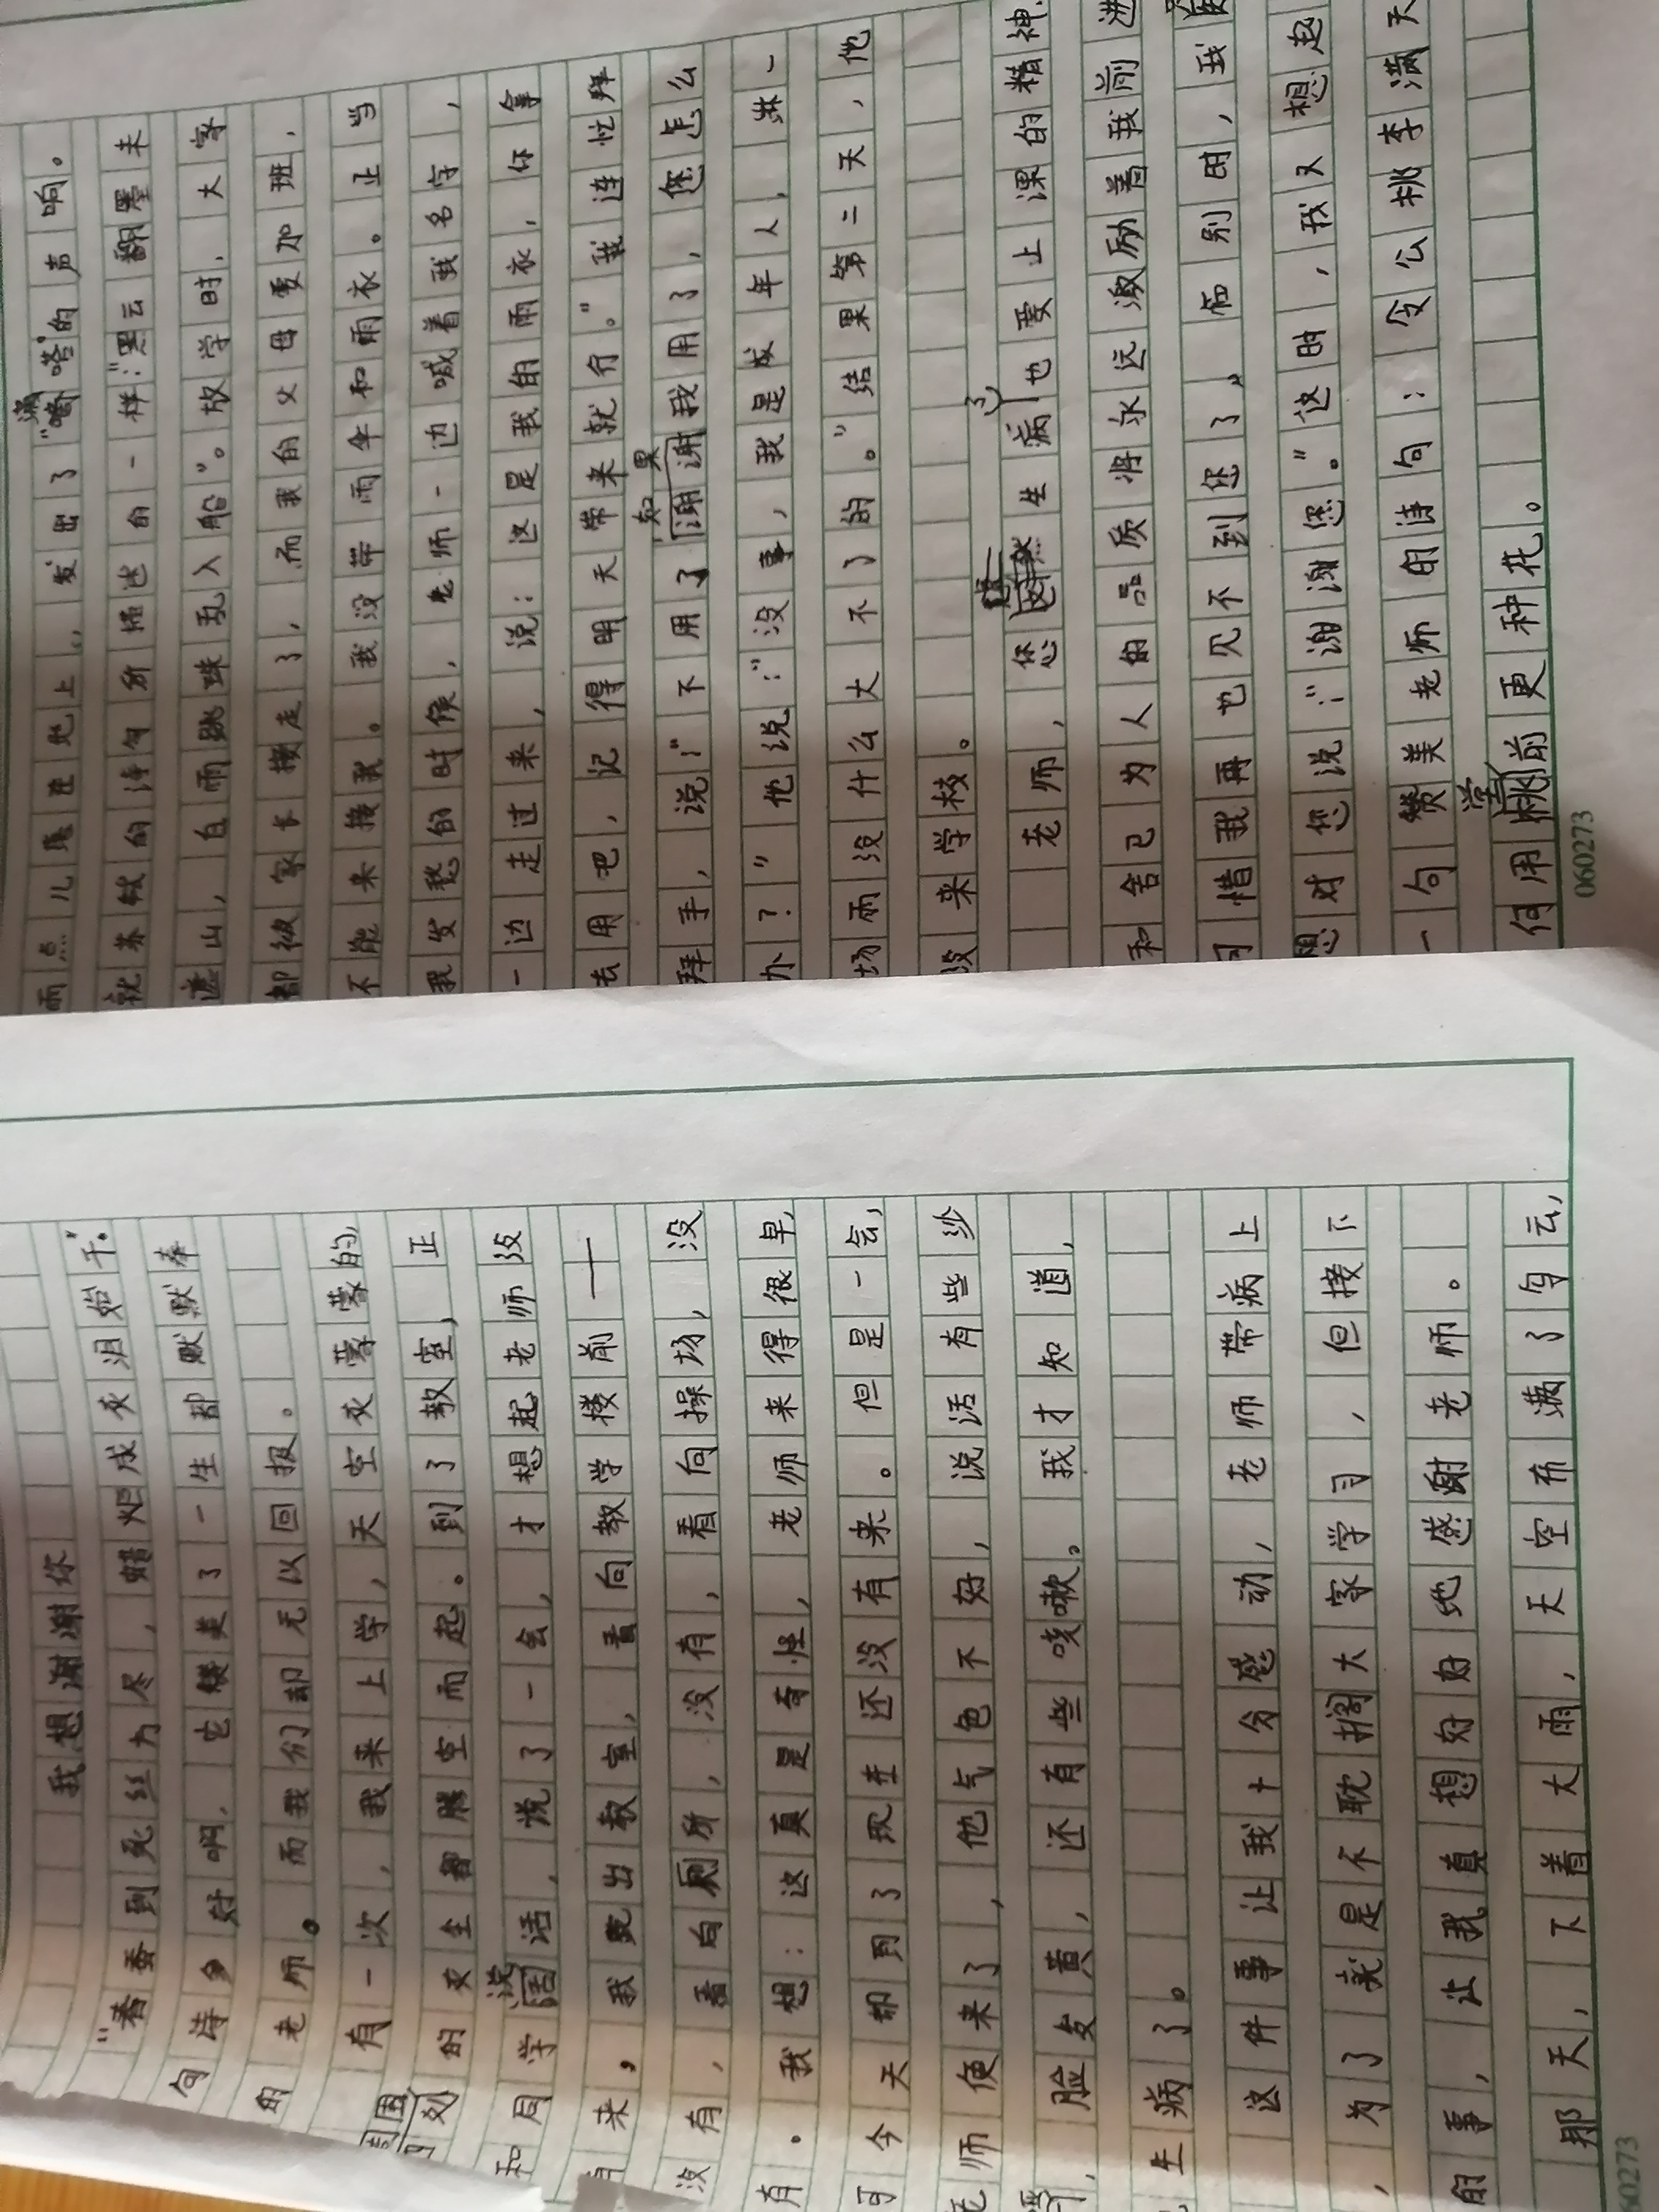 我想谢谢你
"春蚕到死丝方尽，蜡炬成灰泪始干"。
句诗多好啊，它赞美了一生都默默奉
的老师。而我们却无以回报。
有一次，我来上学，天空灰蒙蒙的，
的灰尘都腾空而起。到了教室，正
和同学说话，说了一会，才想起老师没
有来，我跑出教室，看向教学楼前——
没有，看向厕所，没有，看向操场，没
有。我想：这真是奇怪，老师来得很早，
可今天却到了现在还没有来。但是一会，
老师便来了，他气色不好，说话有些沙
，脸发黄，还有些咳嗽。我才知道，
生病了。
这件事让我十分感动，老师带病上
，为了就是不耽搁大家学习，但接下
的事，让我真想好好地感谢老师。
那天，下着大雨，天空布满了乌云，
60273
雨点儿落在地上，发出了"嘀嗒"的声响。
就苏轼的诗句所描述的一样："黑云翻墨未
遮山，白雨跳珠乱入船"。放学时，大家
都被家长接走了，而我的父母要加班，
不能来接我。我没带雨伞和雨衣。正当
我发愁的时候，老师一边喊着我名字，
一边走过来，说：这是我的雨衣，你拿
去用吧，记得明天带来就行。"我连忙拜
拜手，说："不用了如果我用了，您怎么
办？"他说："没事，我是成年人，淋一
场雨没什么大不了的。"结果第二天，他
没来学校。
老师，您生病了也要上课的精神
和舍己为人的品质将永远激励着我前进
可惜我再也见不到您了。临别时，我
想对您说："谢谢您。"这时，我又想起
一句赞美老师的诗句：令公桃李满天
何用堂前更种花。
060273